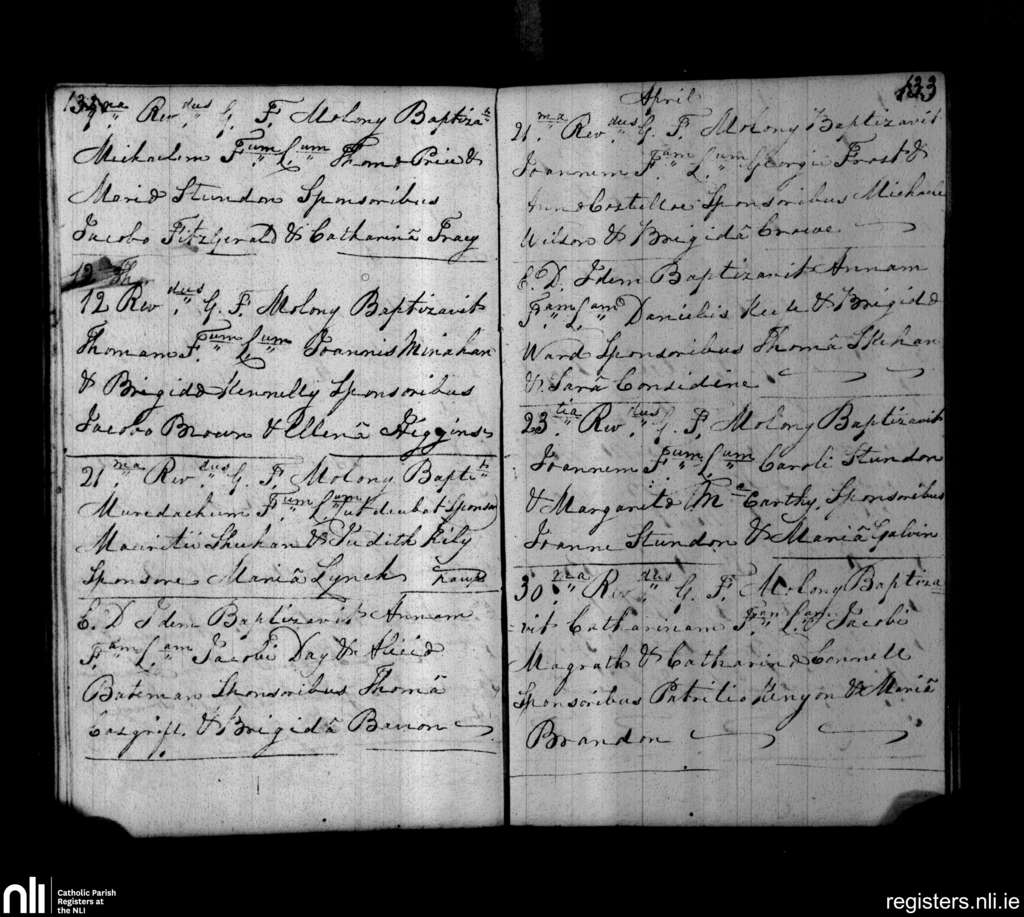 132
9 na Revdus G. F. Molony Baptiza t
Michaelem Fum Lum Thomæ Price &
Mariæ Stundon Sponsoribus
Jacobo Fitzgerald & Catharinâ Tracy
12 Th.
12 Revdus G. F. Molony Baptizavit
Thomam Fum Lum Joannis Minahan
& Brigidæ Kennelly Sponsoribus
Jacobo Brown & Ellenâ Higgins
21 ma Revdus G. F. Molony Bapti t
Muredachum Fum Lum ut
Mauritii Shuhan & Judith Kily
Sponsore Mariâ Lynch
E. D. Idem Baptizavit Annam
Fam Lam Jacobi Day & Aliciæ
Bateman Sponsoribus Thomâ
Cosgriff. & Brigidâ Barron
133
April
21 ma Revdus G. F. Molony Baptizavit
Joannem Fum Lum Georgii Frost &
Annæ Costelloe Sponsoribus Michaele
Wilson & Brigidâ Crowe
E. D. Idem Baptizavit Annam
Fam Lam Danielis & Brigidæ
Ward Sponsoribus Thomâ Skehan
& Sarâ Considine
23 tia Revdus G. F. Molony Baptizavit
Joannem Fum Lum Caroli Stundon
& Margaritæ Ma Carthy, Sponsoribus
Joanne Stundon & Mariâ Galvin
30 ma Revdus G. F. Molony Baptiza
=vit Catharinam Fam Lam Jacobi
Magrath & Catharinæ Connell
Sponsoribus Patritio Kenyon & Mariâ
Brandon
nli
Catholic Parish
Registers at
the NLI
registers.nli.ie